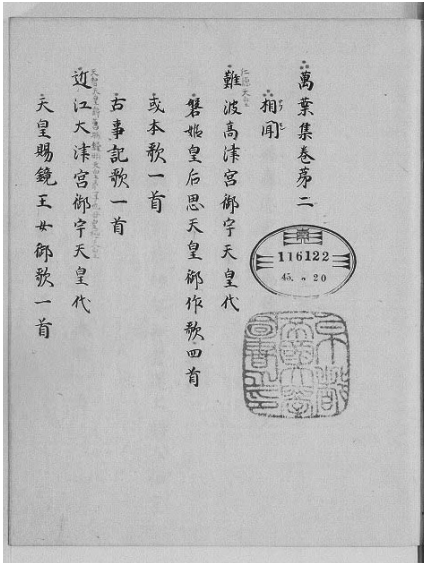 萬葉集卷苐二
相聞
難波髙津宮御宇天皇代
仁德天皇
磐姫皇后思天皇御作歌四首
或本歌一首
古事記歌一首
近江大津宮御宇天皇代
天皇賜鏡王女御歌一首
116122
45. 8 20